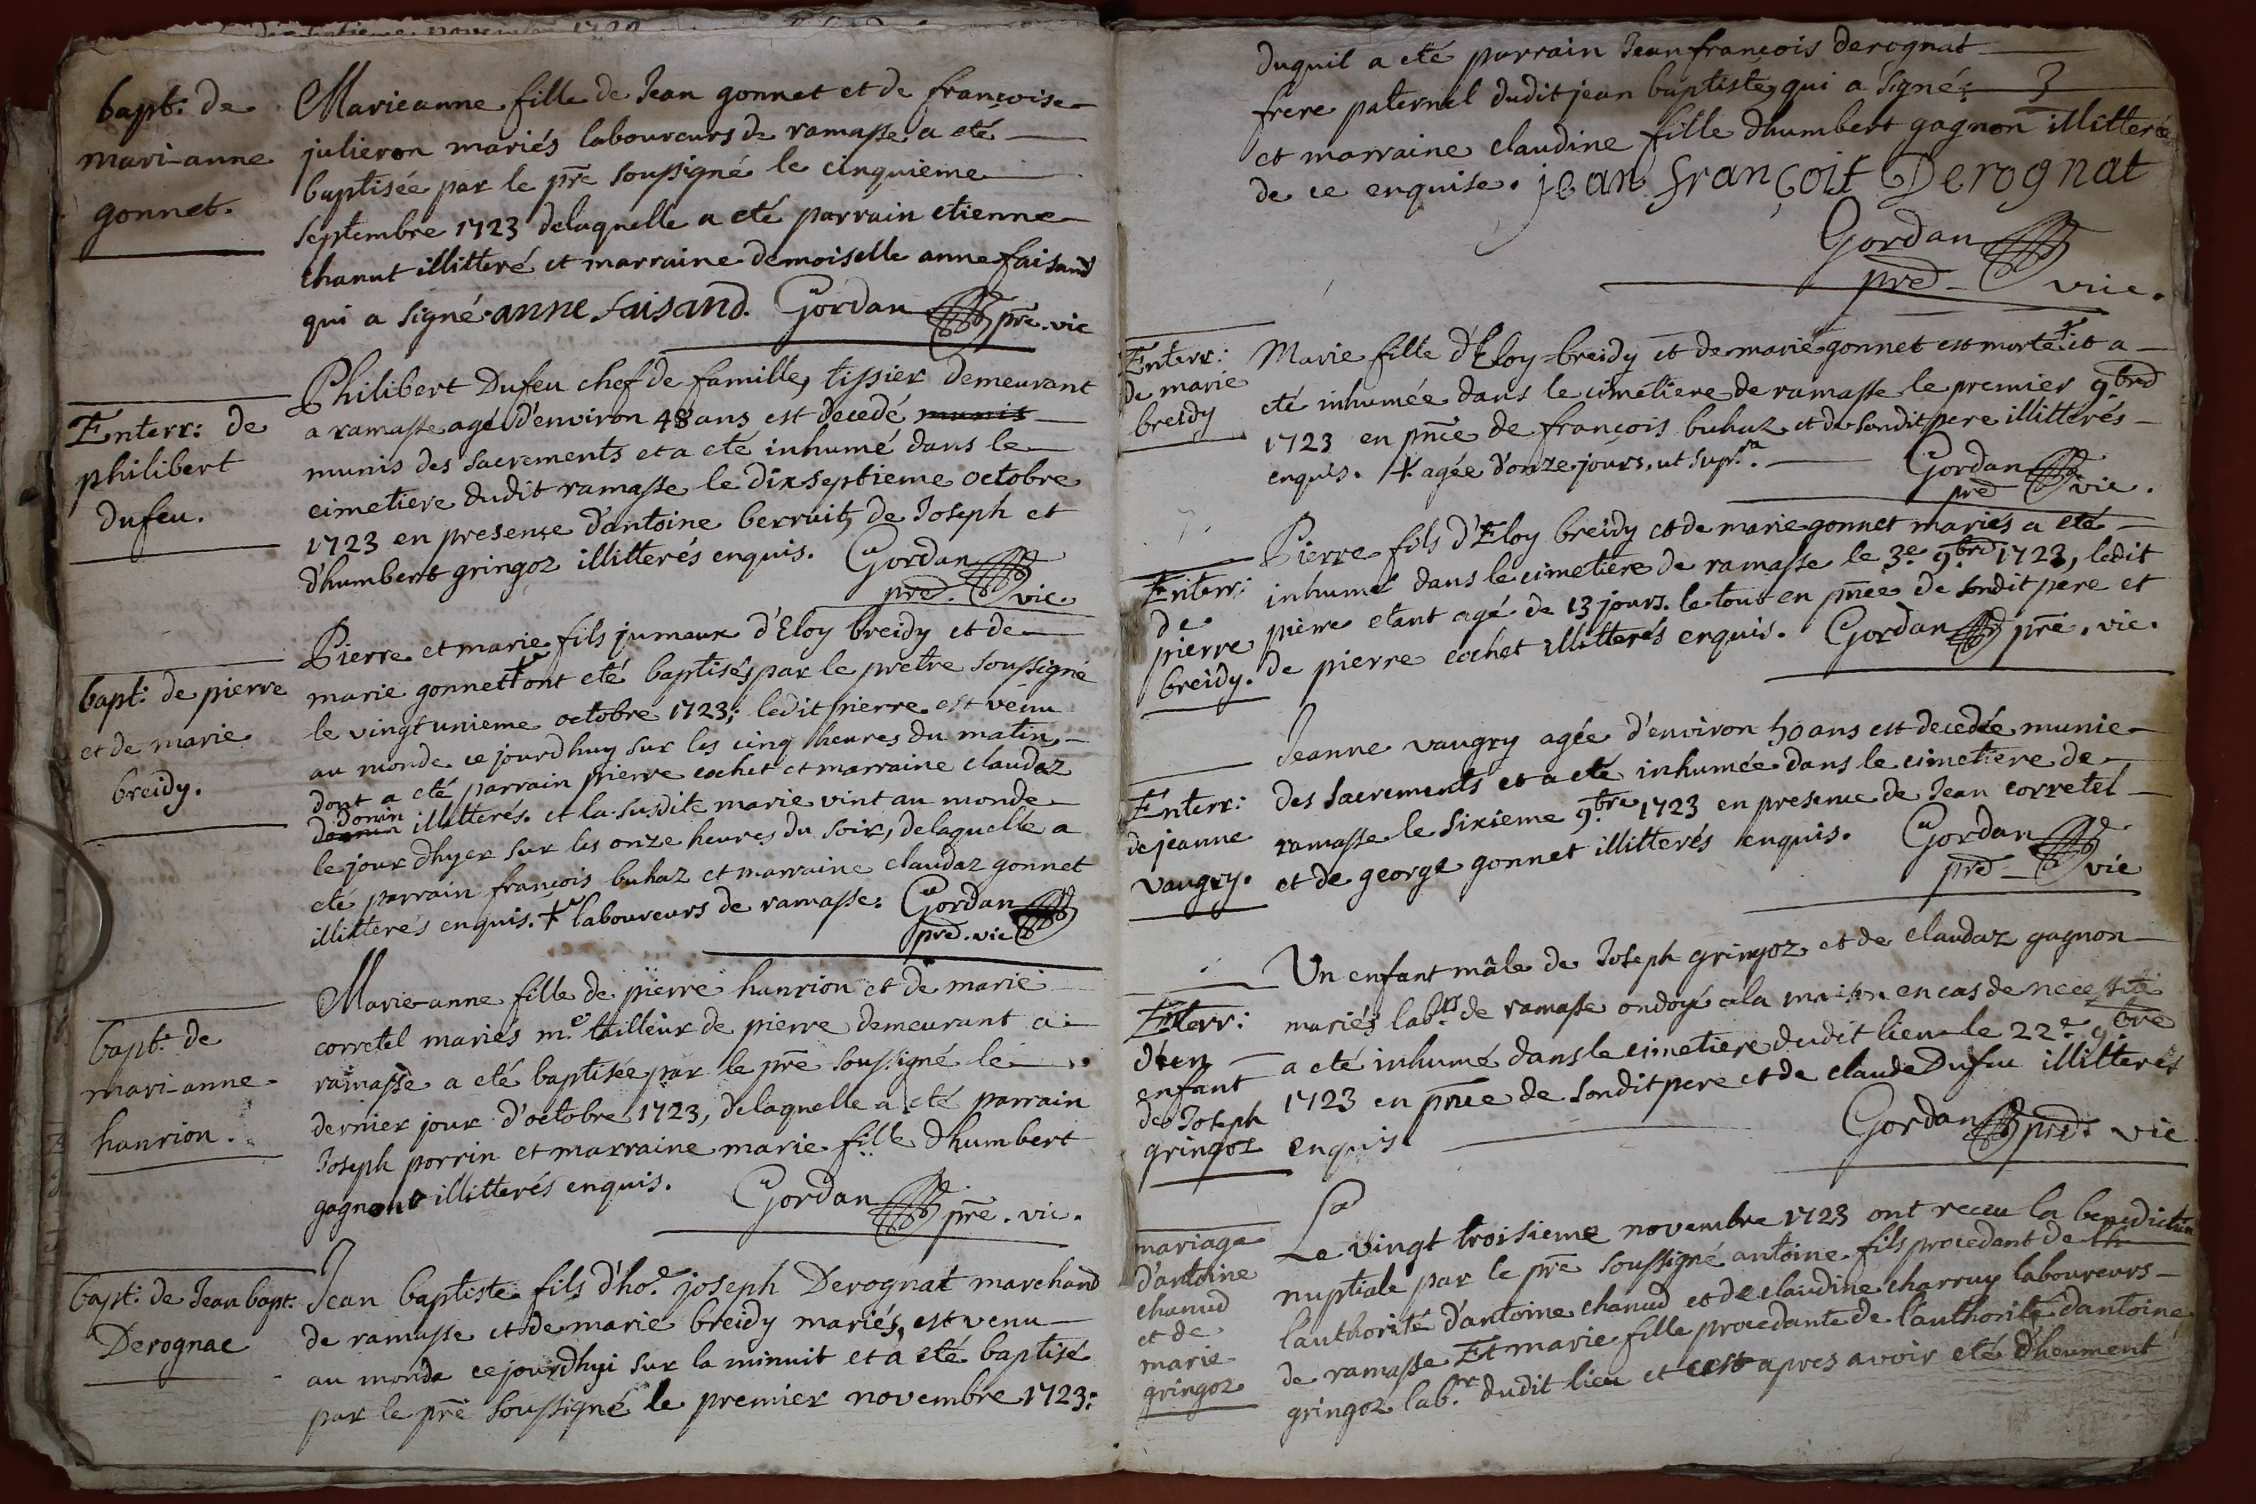 bapt: de
mari-anne
gonnet.
Marieanne fille de Jean gonnet et de françoise
julieron mariés laboureurs de ramasse a eté
baptisée par le pre soussigné le cinquieme
septembre 1723 delaquelle a eté parrain etienne
chanut illitteré et marraine demoiselle anne faisand
qui a signé. anne faisand. Gordan pre. vic
Enterr: de
philibert
dufeu.
Philibert Dufeu chef de famille, tissier demeurant
a ramasse agé d'environ 48 ans est decedé munis
munis des sacrements et a eté inhumé dans le
cimetiere dudit ramasse le dixseptieme octobre
1723 en presence d'antoine berruit, de Joseph et
d'humbert gringoz illitterés enquis. Gordan
pre. vic.
bapt: de pierre
et de marie
breidy.
Pierre et marie fils jumeaux d'Eloy breidy et de
marie gonnet + ont eté baptisés par le pretre soussigné
le vingt unieme octobre 1723; ledit pierre est venu
au monde ce jourdhuy sur les cinq heures du matin
dont a eté parrain pierre cochet et marraine claudaz
donin
illitterés. et la susdite marie vint au monde
le jour dhyer sur les onze heures du soir, delaquelle a
eté parrain françois buhaz et marraine claudaz gonnet
illitterés enquis. + laboureurs de ramasse. Gordan
pre. vic
bapt: de
mari-anne
hanrion.
Marie-anne fille de pierre hanrion et de marie
corretel mariés me tailleur de pierre demeurant a
ramasse a eté baptisée par le pre soussigné le
dernier jour d'octobre 1723, delaquelle a eté parrain
Joseph porrin et marraine marie fille dhumbert
gagnon illitterés enquis. Gordan
pre. vic.
bapt: de Jean bapt.
Derognat
Jean baptiste fils d'ho.e joseph Derognat marchand
de ramasse et de marie breidy mariés, est venu
au monde ce jourdhyi sur la minuit et a eté baptisé
par le pre soussigné le premier novembre 1723:
duquil a eté parrain Jean françois derognat
frere paternel dudit jean baptiste, qui a signé;
et marraine claudine fille dhumbert gagnon illitterée
de ce enquise. jean françoit Derognat
Gordan
pre vic.
Enterr:
de marie
breidy
Marie fille d'Eloy breidy et de marie gonnet est morte + et a
eté inhumée dans le cimetiere de ramasse le premier 9.bre
1723 en pnce de françois buhaz et de sondit pere illitterés
enquis. + agée d'onze jours. ut supra. Gordan
pre vic.
Enterr:
de
pierre
breidy.
Pierre fils d'Eloy breidy et de marie gonnet mariés a eté
inhumé dans le cimetiere de ramasse le 3.e 9.bre 1723, ledit
pierre etant agé de 13 jours. le tout en pnce de sondit pere et
de pierre cochet illitterés enquis. Gordan pre. vic.
Enterr:
de jeanne
vaugry.
Jeanne vaugry agée d'environ 50 ans est decedée munie
des sacrements et a eté inhumée dans le cimetiere de
ramasse le sixieme 9.bre 1723 en presence de Jean corretel
et de george gonnet illitterés enquis. Gordan
pre vic
Enterr:
d'un
enfant
de Joseph
gringoz
Un enfant mâle de Joseph gringoz et de claudaz gagnon
mariés lab.rs de ramasse ondoyé a la maison en cas de necessité
a eté inhumé dans le cimetiere dudit lieu le 22.e 9.bre
1723 en pnce de sondit pere et de claude Dufeu illitterés
enquis. Gordan pre. vic
mariage
d'antoine
chanud
et de
marie
gringoz
Le vingt troisieme novembre 1723 ont receu la benediction
nuptiale par le pre soussigné antoine fils procedant de
lauthorité d'antoine chanud et de claudine charruy laboureurs
de ramasse Et marie fille procedante de l'authorité dantoine
gringoz lab.r dudit lieu et cest apres avoir eté dheument